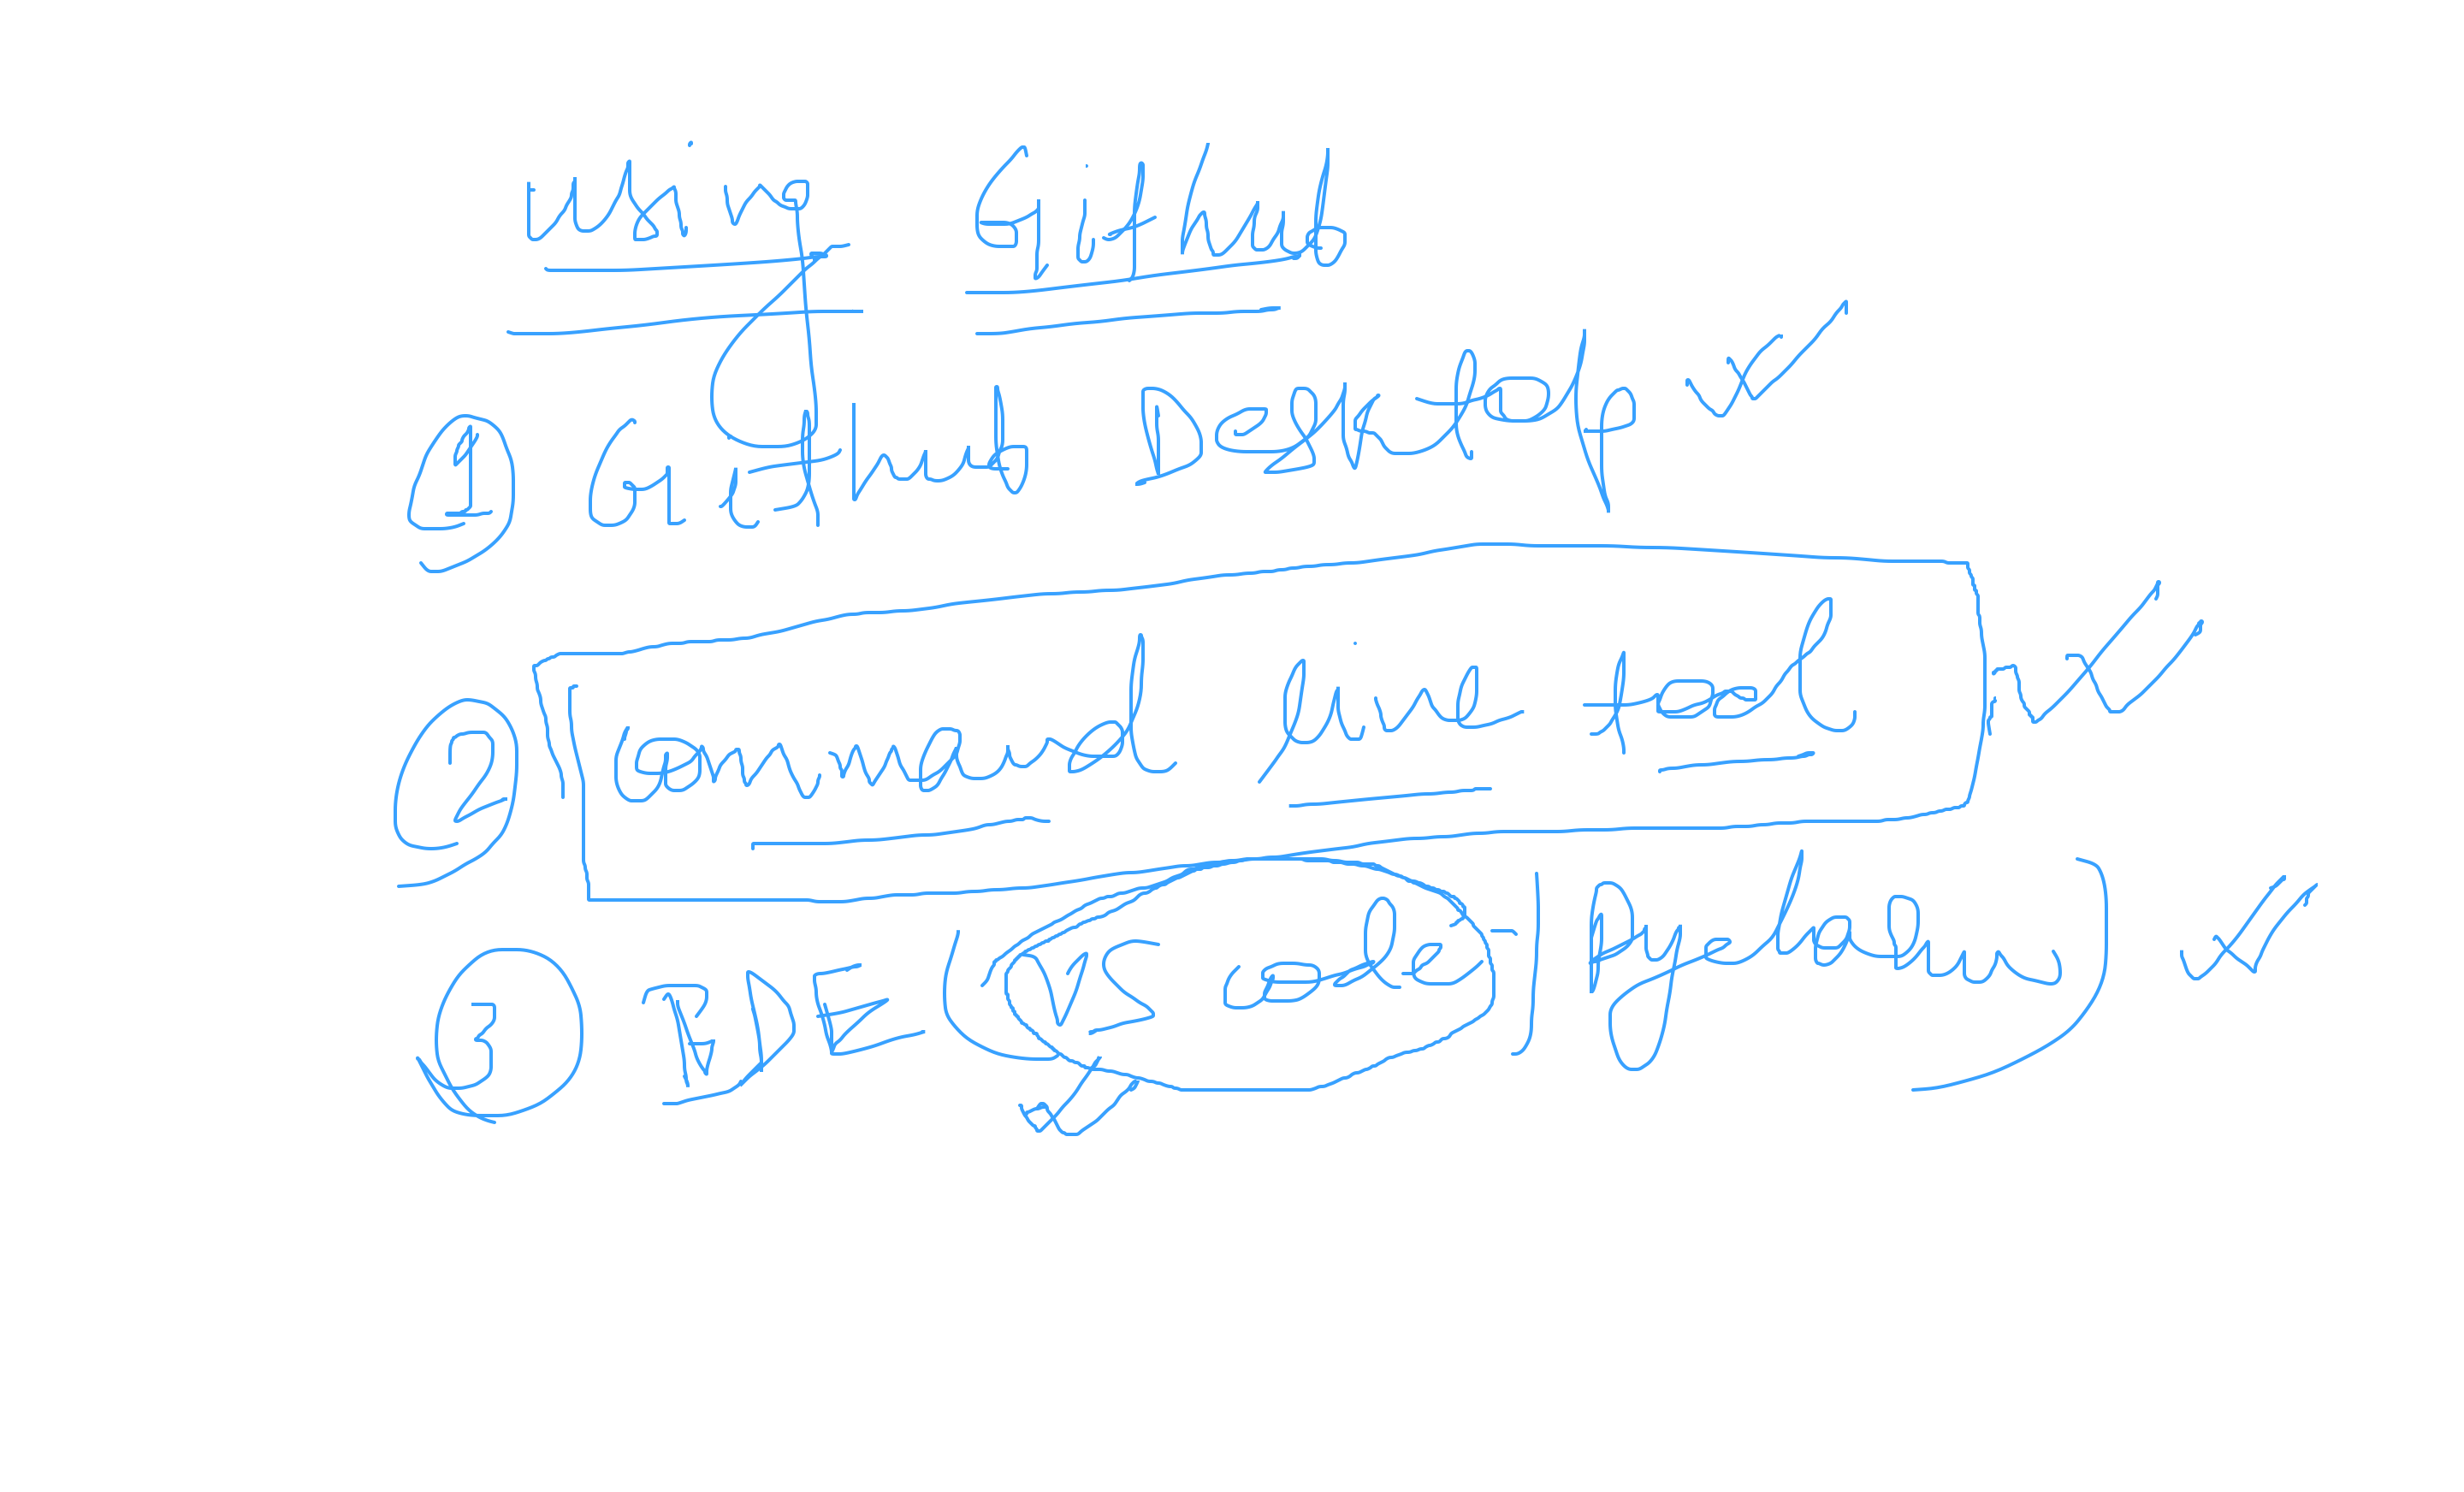 using GitHub
① GitHub Desktop
② Command line tool
③ IDE (VS Code, PyCharm)